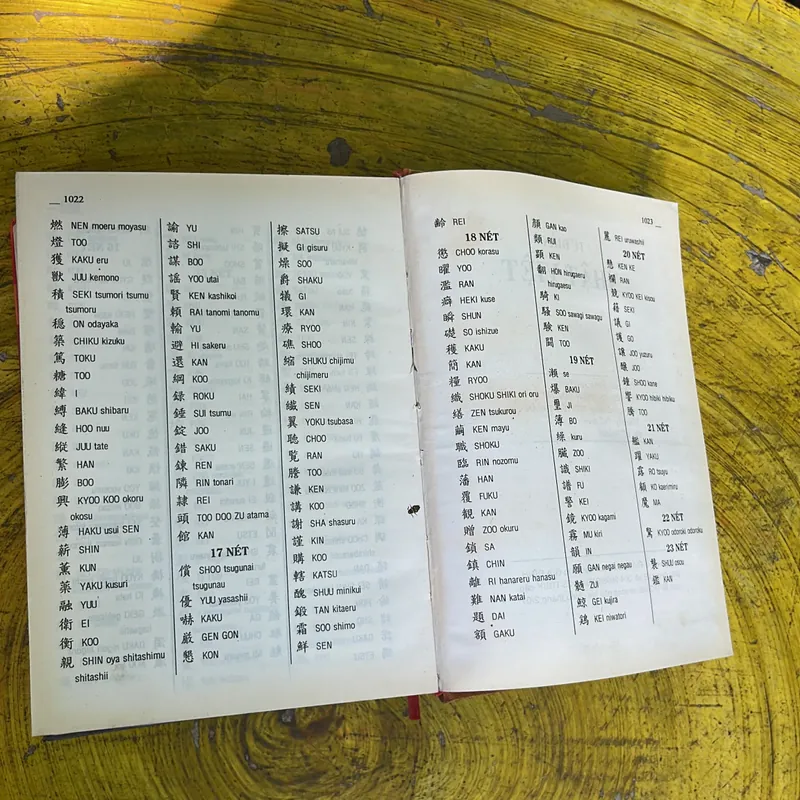 1022
燃 NEN moeru moyasu
燈 TOO
獲 KAKU eru
獣 JUU kemono
積 SEKI tsumori tsumu
tsumoru
穏 ON odayaka
築 CHIKU kizuku
篤 TOKU
糖 TOO
緯 I
縛 BAKU shibaru
縫 HOO nuu
縦 JUU tate
繁 HAN
膨 BOO
興 KYOO KOO okoru
okosu
薄 HAKU usui SEN
薪 SHIN
薫 KUN
薬 YAKU kusuri
融 YUU
衛 EI
衡 KOO
親 SHIN oya shitashimu
shitashii
諭 YU
諮 SHI
謀 BOO
謡 YOO utai
賢 KEN kashikoi
頼 RAI tanomi tanomu
輸 YU
避 HI sakeru
還 KAN
綱 KOO
録 ROKU
錘 SUI tsumu
錠 JOO
錯 SAKU
錬 REN
隣 RIN tonari
隷 REI
頭 TOO DOO ZU atama
館 KAN
17 NÉT
償 SHOO tsugunai
tsugunau
優 YUU yasashii
嚇 KAKU
厳 GEN GON
懇 KON
擦 SATSU
擬 GI gisuru
燥 SOO
爵 SHAKU
犠 GI
環 KAN
療 RYOO
礁 SHOO
縮 SHUKU chijimu
chijimeru
績 SEKI
繊 SEN
翼 YOKU tsubasa
聴 CHOO
覧 RAN
謄 TOO
謙 KEN
講 KOO
謝 SHA shasuru
謹 KIN
購 KOO
轄 KATSU
醜 SHUU minikui
鍛 TAN kitaeru
霜 SOO shimo
鮮 SEN
1023
齢 REI
18 NÉT
懲 CHOO korasu
曜 YOO
濫 RAN
癖 HEKI kuse
瞬 SHUN
礎 SO ishizue
穫 KAKU
簡 KAN
糧 RYOO
織 SHOKU SHIKI ori oru
繕 ZEN tsukurou
繭 KEN mayu
職 SHOKU
臨 RIN nozomu
藩 HAN
覆 FUKU
観 KAN
贈 ZOO okuru
鎖 SA
鎮 CHIN
離 RI hanareru hanasu
難 NAN katai
題 DAI
額 GAKU
顔 GAN kao
類 RUI
顕 KEN
翻 HON hirugaeru
hirugaesu
騎 KI
騒 SOO sawagi sawagu
験 KEN
闘 TOO
19 NÉT
瀬 se
爆 BAKU
璽 JI
簿 BO
繰 kuru
臓 ZOO
識 SHIKI
譜 FU
警 KEI
鏡 KYOO kagami
霧 MU kiri
韻 IN
願 GAN negai negau
髄 ZUI
鯨 GEI kujira
鶏 KEI niwatori
麗 REI urawashii
20 NÉT
懸 KEN KE
欄 RAN
競 KYOO KEI kisou
籍 SEKI
議 GI
護 GO
譲 JOO yuzuru
醸 JOO
鐘 SHOO kane
響 KYOO hibiki hibiku
騰 TOO
21 NÉT
艦 KAN
躍 YAKU
露 RO tsuyu
顧 KO kaerimiru
魔 MA
22 NÉT
驚 KYOO odoroki odoroku
23 NÉT
襲 SHUU osou
鑑 KAN